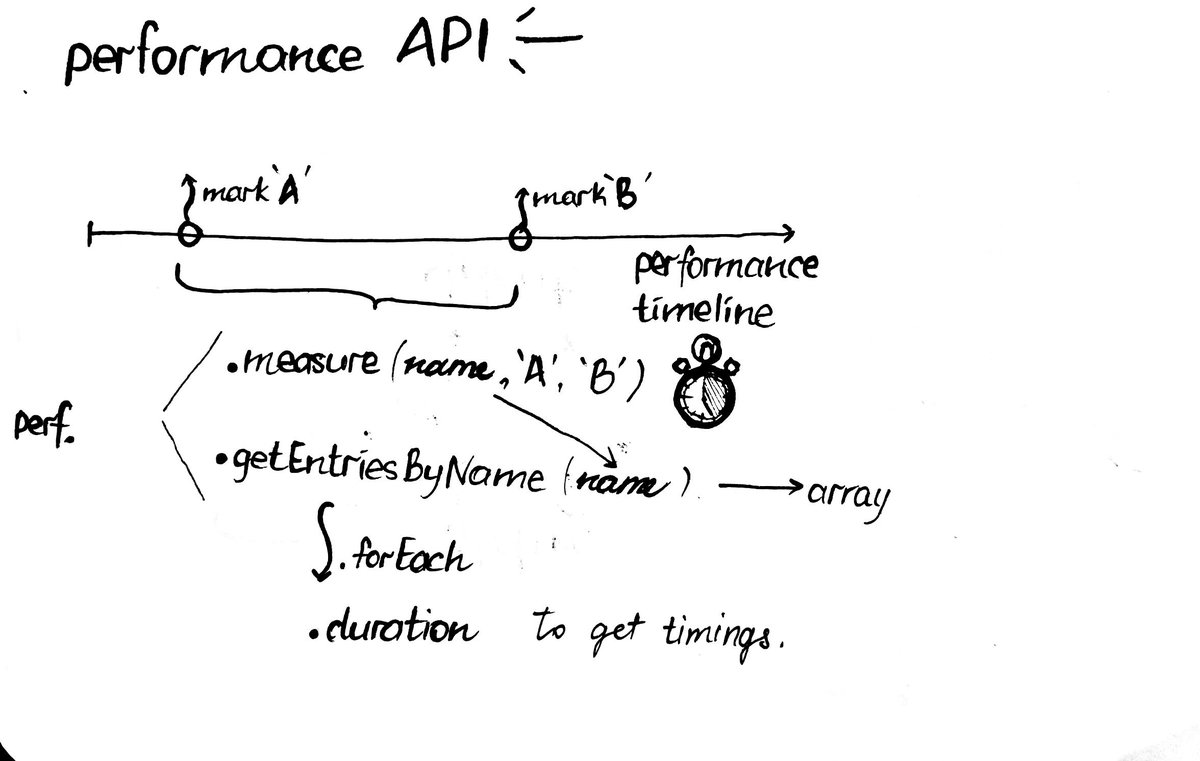 performance API
mark 'A'
mark 'B'
performance
timeline
.measure (name, 'A', 'B')
perf.
.getEntriesByName (name) → array
.forEach
.duration to get timings.